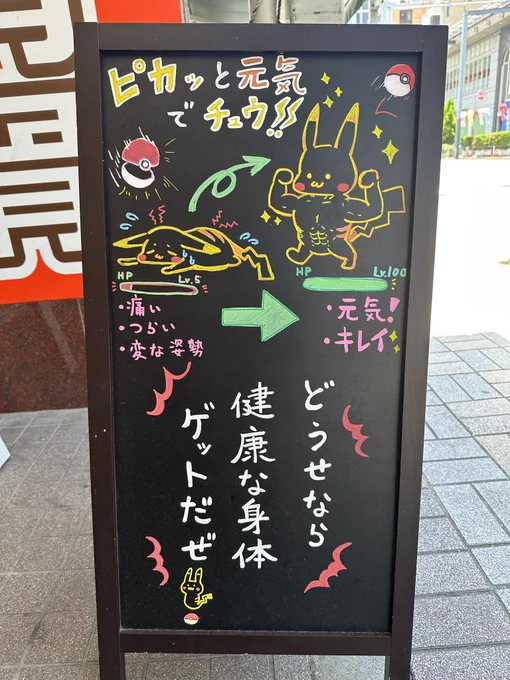 ピカッと元気
でチュウ!!
HP Lv.5
・痛い
・つらい
・変な姿勢
HP Lv.100
・元気!
・キレイ
どうせなら
健康な身体
ゲットだぜ